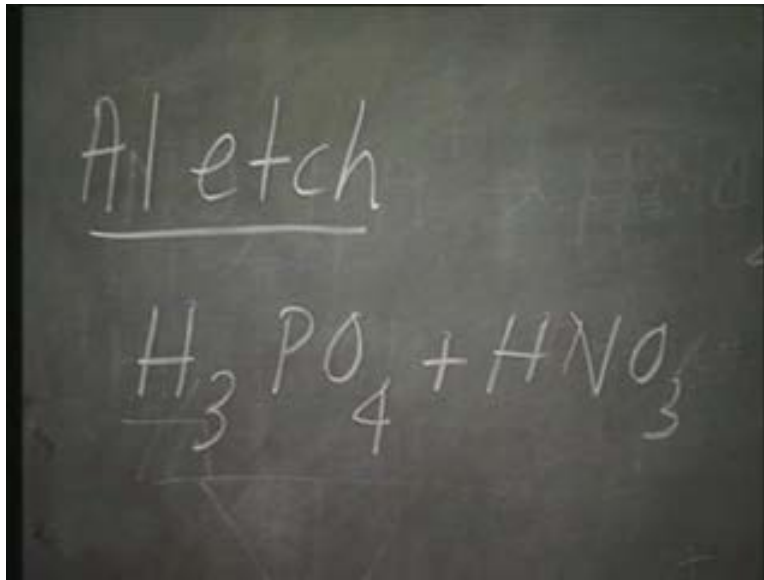 Al etch
H₃PO₄ + HNO₃